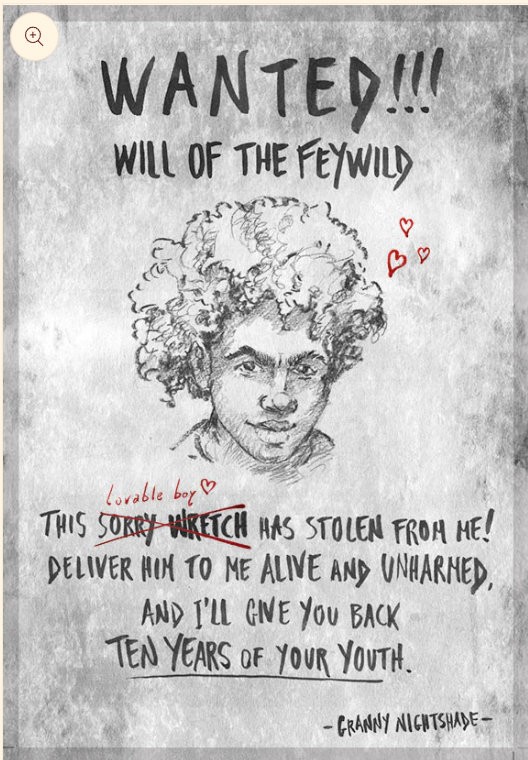 WANTED!!!
WILL OF THE FEYWILD
lovable boy
THIS SORRY WRETCH HAS STOLEN FROM ME!
DELIVER HIM TO ME ALIVE AND UNHARMED,
AND I'LL GIVE YOU BACK
TEN YEARS OF YOUR YOUTH.
-GRANNY NIGHTSHADE-